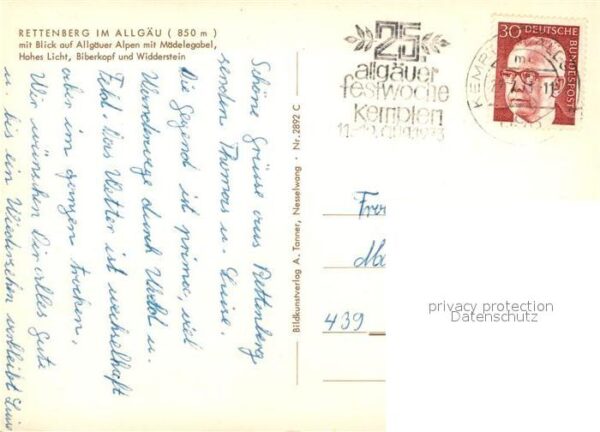 RETTENBERG IM ALLGÄU ( 850 m )
mit Blick auf Allgäuer Alpen mit Mädelegabel,
Hohes Licht, Biberkopf und Widderstein
Schöne Grüsse aus Rettenberg
senden Thomas u. Luise.
Die Gegend ist prima, viel
Wanderwege durch Wald u.
Feld. Das Wetter ist wechselhaft
aber im ganzen trocken.
Wir wünschen Dir alles Gute
u. bis ein Wiedersehen verbleibt Luise
Bildkunstverlag A. Tanner, Nesselwang · Nr. 2892 C
25.
allgäuer
festwoche
kempten
11.-19. aug. 1973
30 DEUTSCHE
BUNDESPOST
KEMPT
439
privacy protection
Datenschutz